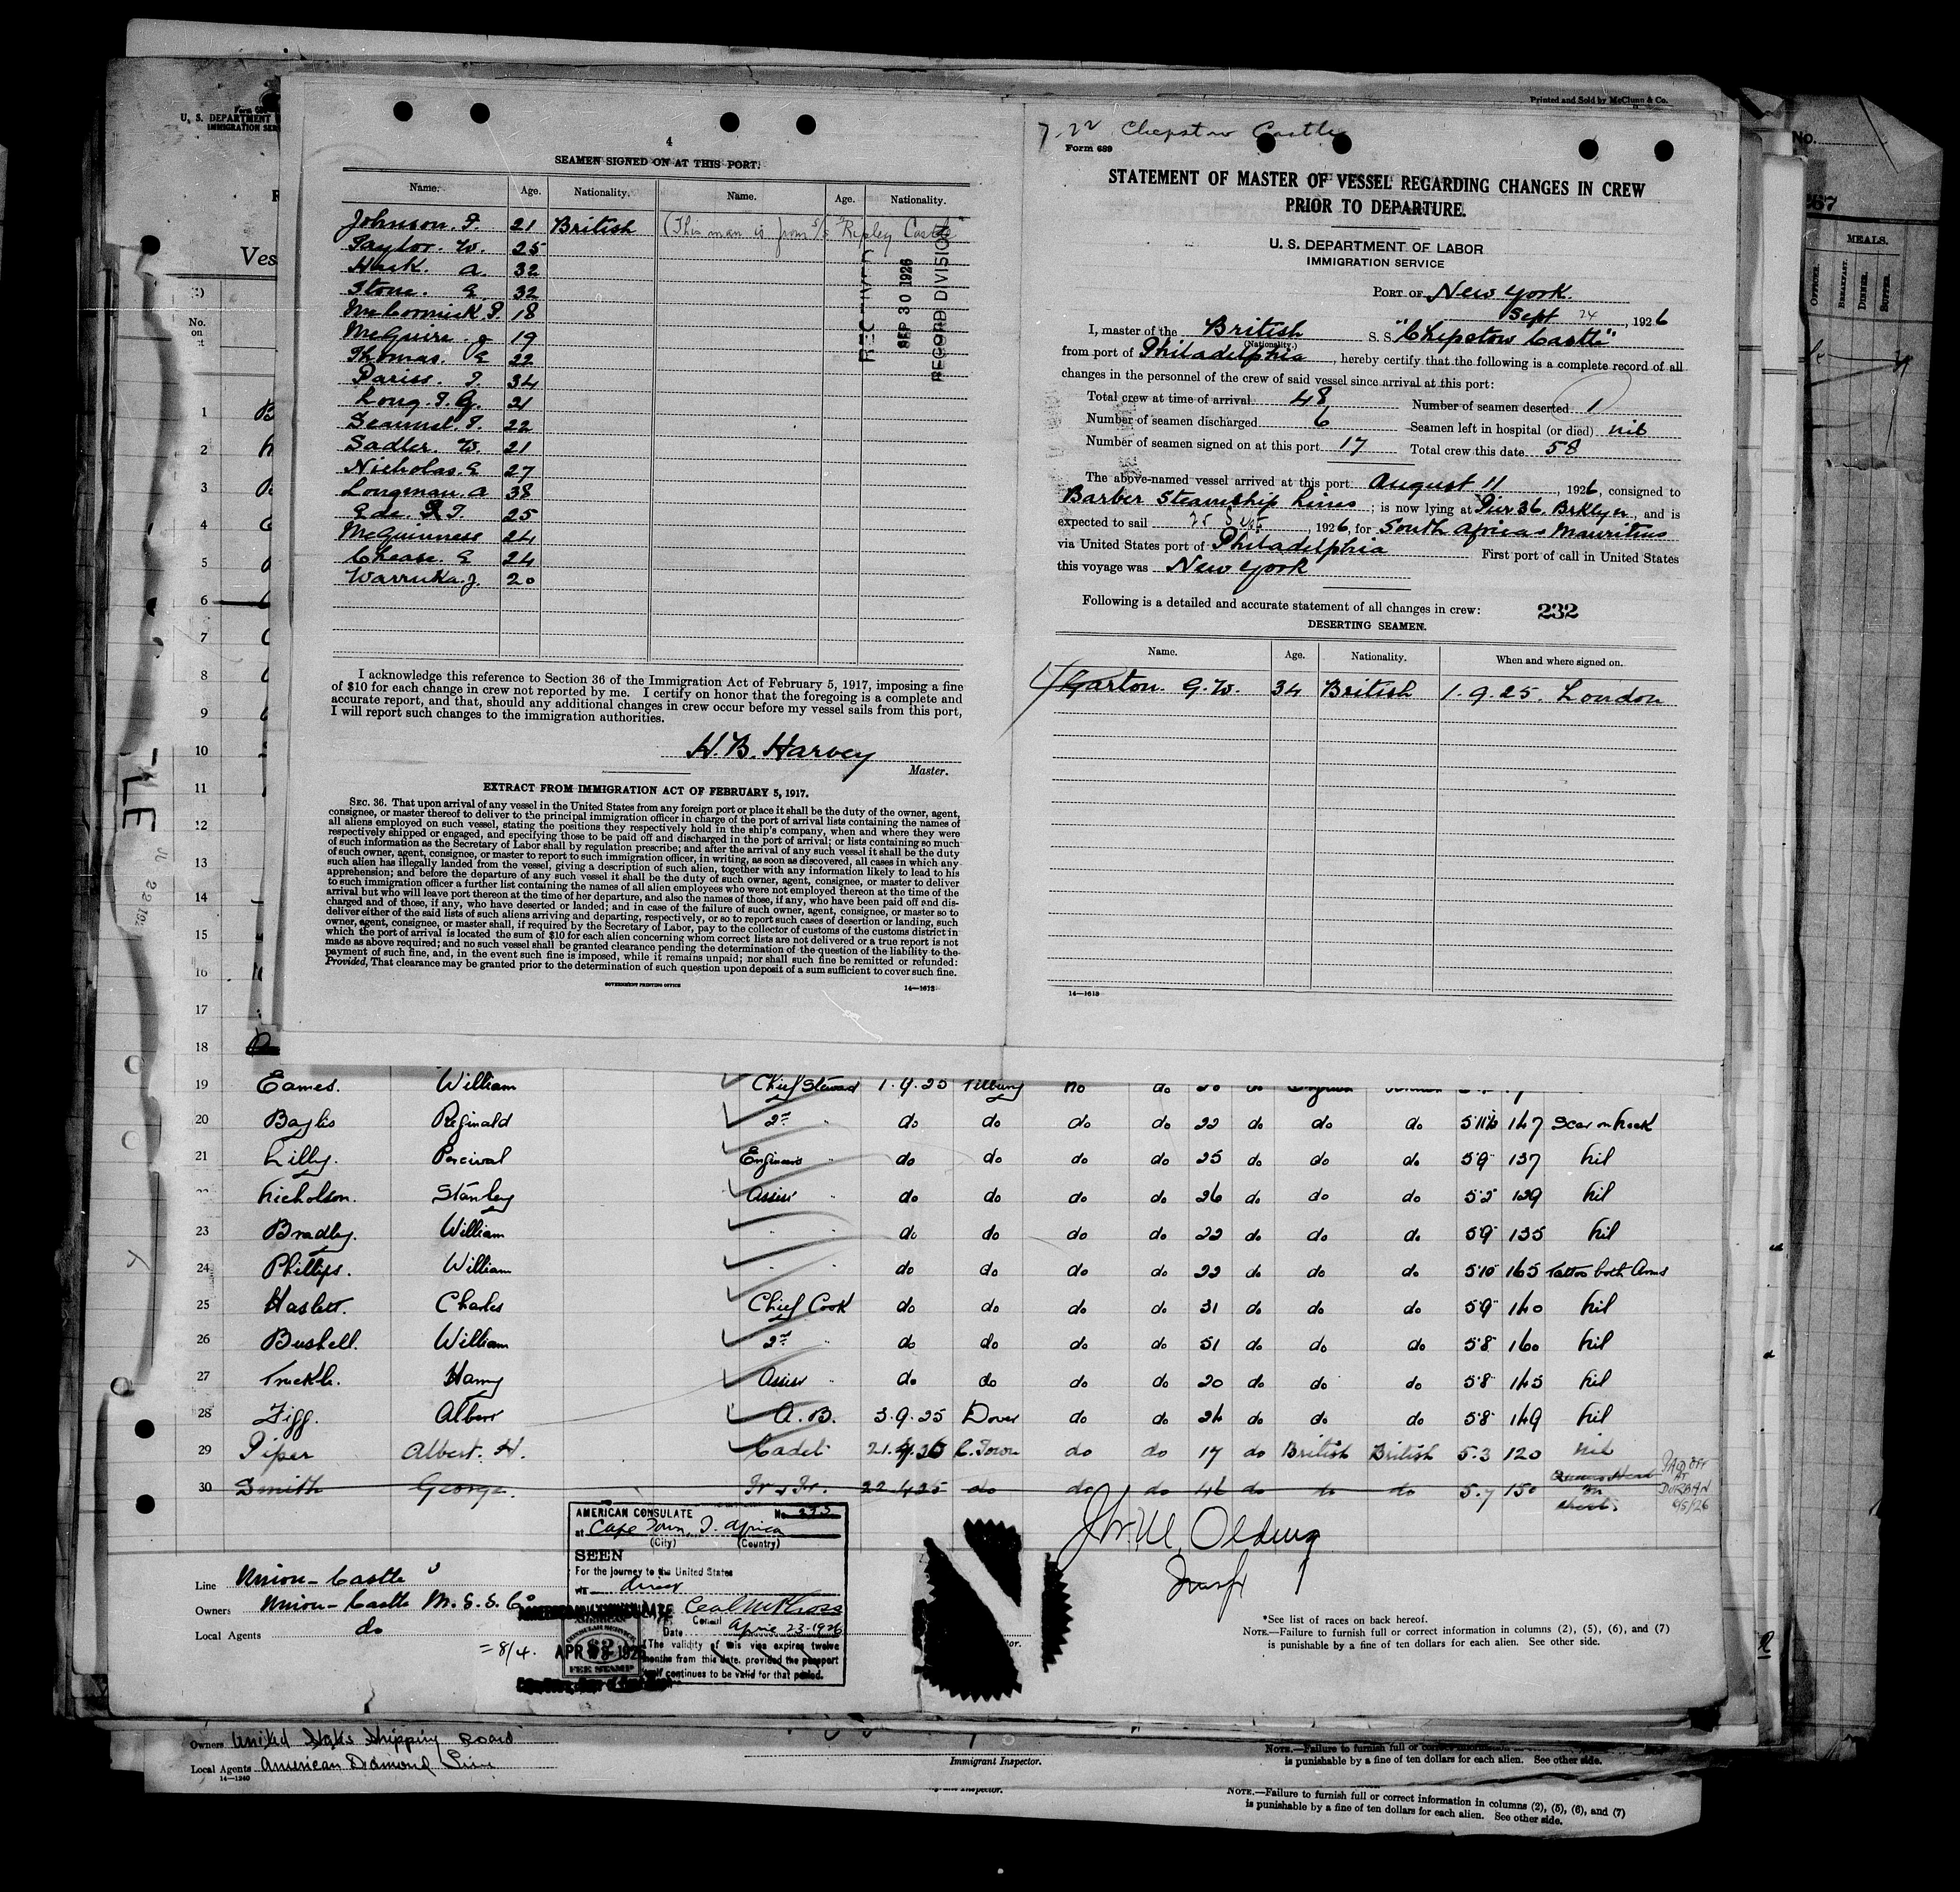 Printed and Sold by McClunn & Co.
U. S. DEPARTMENT
IMMIGRATION SER
Ves
No.
on
4
SEAMEN SIGNED ON AT THIS PORT.
Name. Age. Nationality. Name. Age. Nationality.
Johnson. F. 21 British (This man is from S/S "Ripley Castle"
Taylor. W. 25
Hask. A. 32
Stone. E. 32
McCormick. P. 18
McGuire J 19
Thomas. E 22
Pariss. T. 34
Long. T. G. 21
22
Sadler. W. 21
Nicholas. E 27
Longman. A 38
Ede. T. 25
McGuinness 24
Chease. E 24
Warruka. J. 20
RECEIVED
SEP 30 1926
RECORD DIVISION
I acknowledge this reference to Section 36 of the Immigration Act of February 5, 1917, imposing a fine
of $10 for each change in crew not reported by me. I certify on honor that the foregoing is a complete and
accurate report, and that, should any additional changes in crew occur before my vessel sails from this port,
I will report such changes to the immigration authorities.
H. B. Harvey
Master.
EXTRACT FROM IMMIGRATION ACT OF FEBRUARY 5, 1917.
SEC. 36. That upon arrival of any vessel in the United States from any foreign port or place it shall be the duty of the owner, agent,
consignee, or master thereof to deliver to the principal immigration officer in charge of the port of arrival lists containing the names of
all aliens employed on such vessel, stating the positions they respectively hold in the ship's company, when and where they were
respectively shipped or engaged, and specifying those to be paid off and discharged in the port of arrival; or lists containing so much
of such information as the Secretary of Labor shall by regulation prescribe; and after the arrival of any such vessel it shall be the duty
of such owner, agent, consignee, or master to report to such immigration officer, in writing, as soon as discovered, all cases in which any
such alien has illegally landed from the vessel, giving a description of such alien, together with any information likely to lead to his
apprehension; and before the departure of any such vessel it shall be the duty of such owner, agent, consignee, or master to deliver
to such immigration officer a further list containing the names of all alien employees who were not employed thereon at the time of the
arrival but who will leave port thereon at the time of her departure, and also the names of those, if any, who have been paid off and dis-
charged and of those, if any, who have deserted or landed; and in case of the failure of such owner, agent, consignee, or master so to
deliver either of the said lists of such aliens arriving and departing, respectively, or so to report such cases of desertion or landing, such
owner, agent, consignee, or master shall, if required by the Secretary of Labor, pay to the collector of customs of the customs district in
which the port of arrival is located the sum of $10 for each alien concerning whom correct lists are not delivered or a true report is not
made as above required; and no such vessel shall be granted clearance pending the determination of the question of the liability to the
payment of such fine, and, in the event such fine is imposed, while it remains unpaid; nor shall such fine be remitted or refunded:
Provided, That clearance may be granted prior to the determination of such question upon deposit of a sum sufficient to cover such fine.
GOVERNMENT PRINTING OFFICE 14—1613
7-22 Chepstow Castle
Form 689
STATEMENT OF MASTER OF VESSEL REGARDING CHANGES IN CREW
PRIOR TO DEPARTURE.
U. S. DEPARTMENT OF LABOR
IMMIGRATION SERVICE
PORT OF New York.
Sept 24, 1926
I, master of the British S. S. "Chepstow Castle"
(Nationality.)
from port of Philadelphia, hereby certify that the following is a complete record of all
changes in the personnel of the crew of said vessel since arrival at this port:
Total crew at time of arrival 48 Number of seamen deserted 1
Number of seamen discharged 6 Seamen left in hospital (or died) nil
Number of seamen signed on at this port 17 Total crew this date 58
The above-named vessel arrived at this port August 11, 1926, consigned to
Barber Steamship Lines; is now lying at Pier 36, Brklyn, and is
expected to sail 25 Sept, 1926, for South Africa & Mauritius
via United States port of Philadelphia First port of call in United States
this voyage was New York
Following is a detailed and accurate statement of all changes in crew: 232
DESERTING SEAMEN.
Name. Age. Nationality. When and where signed on.
Garton G. W. 34 British 1.9.25. London
14—1613
No.
267
MEALS.
OFFICER. BREAKFAST. DINNER. SUPPER.
1
2
3
4
5
6
7
8
9
10
11
12
13
14
15
16
17
18
19 Eames. William Chief Steward 1.9.25 Tilbury no do
20 Baylis Reginald 2nd " do do do do 22 do do do 5'11½ 147 Scar on neck
21 Lilly. Percival Engineers " do do do do 25 do do do 5'9" 137 nil
Nicholson. Stanley Assist " do do do do 26 do do do 5'5" 129 nil
23 Bradley. William " " do do do do 22 do do do 5'9" 135 nil
24 Phillips. William " " do do do do 22 do do do 5'10" 165 Tattoo both Arms
25 Haslett. Charles Chief Cook do do do do 31 do do do 5'9" 140 nil
26 Bushell. William 2nd " do do do do 51 do do do 5'8" 160 nil
27 Truckle. Harry Assist " do do do do 20 do do do 5'8" 145 nil
28 Figg. Albert A. B. 3.9.25 Dover do do 26 do do do 5'8" 149 nil
29 Piper Albert. H. Cadet 21.4.26 C. Town do do 17 do British British 5.3 120 nil
30 Smith George. Fr & Tr. 22.4.25 do do do 46 do do do 5.7 150 chest. PAID OFF AT DURBAN 6/5/26
AMERICAN CONSULATE No.
at Cape Town, S. Africa
(City) (Country)
SEEN
For the journey to the United States
via direct
Consul
Date April 23-1926
The validity of this visa expires twelve
months from this date, provided the passport
itself continues to be valid for that period.
AMERICAN CONSULAR SERVICE
$2
FEE STAMP
APR 23 1926
Jno. M. Olding
Line Union-Castle
Owners Union-Castle M. S. S. Co
Local Agents do
=8/4.
*See list of races on back hereof.
NOTE.—Failure to furnish full or correct information in columns (2), (5), (6), and (7)
is punishable by a fine of ten dollars for each alien. See other side.
Owners United States Shipping Board
Local Agents American Diamond Line
14—1240
Immigrant Inspector.
NOTE.—Failure to furnish full or correct information
is punishable by a fine of ten dollars for each alien. See other side.
Inspector.
NOTE.—Failure to furnish full or correct information in columns (2), (5), (6), and (7)
is punishable by a fine of ten dollars for each alien. See other side.